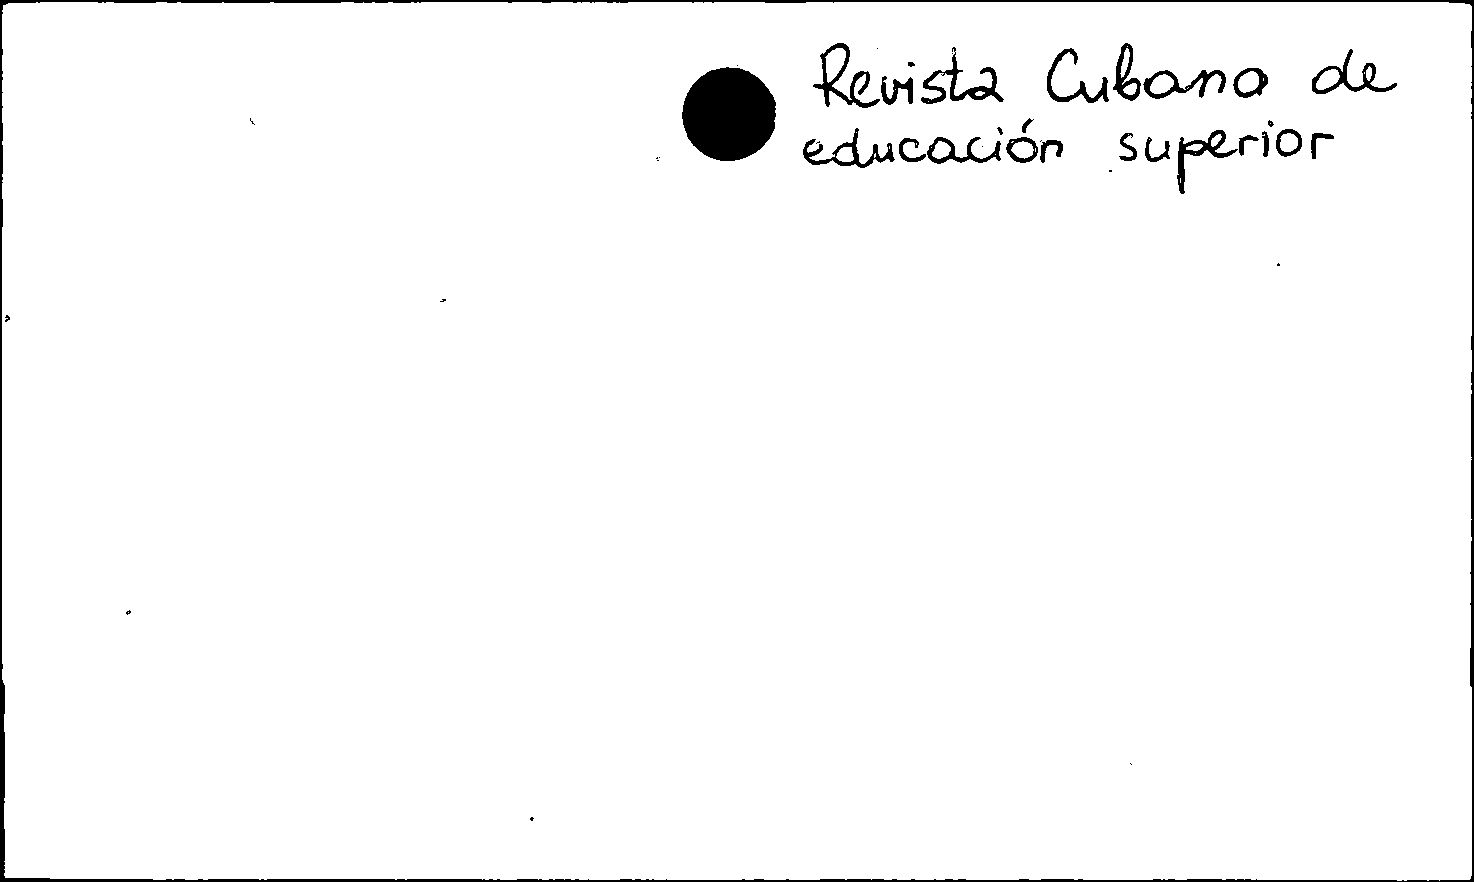 Revista Cubana de
educación superior